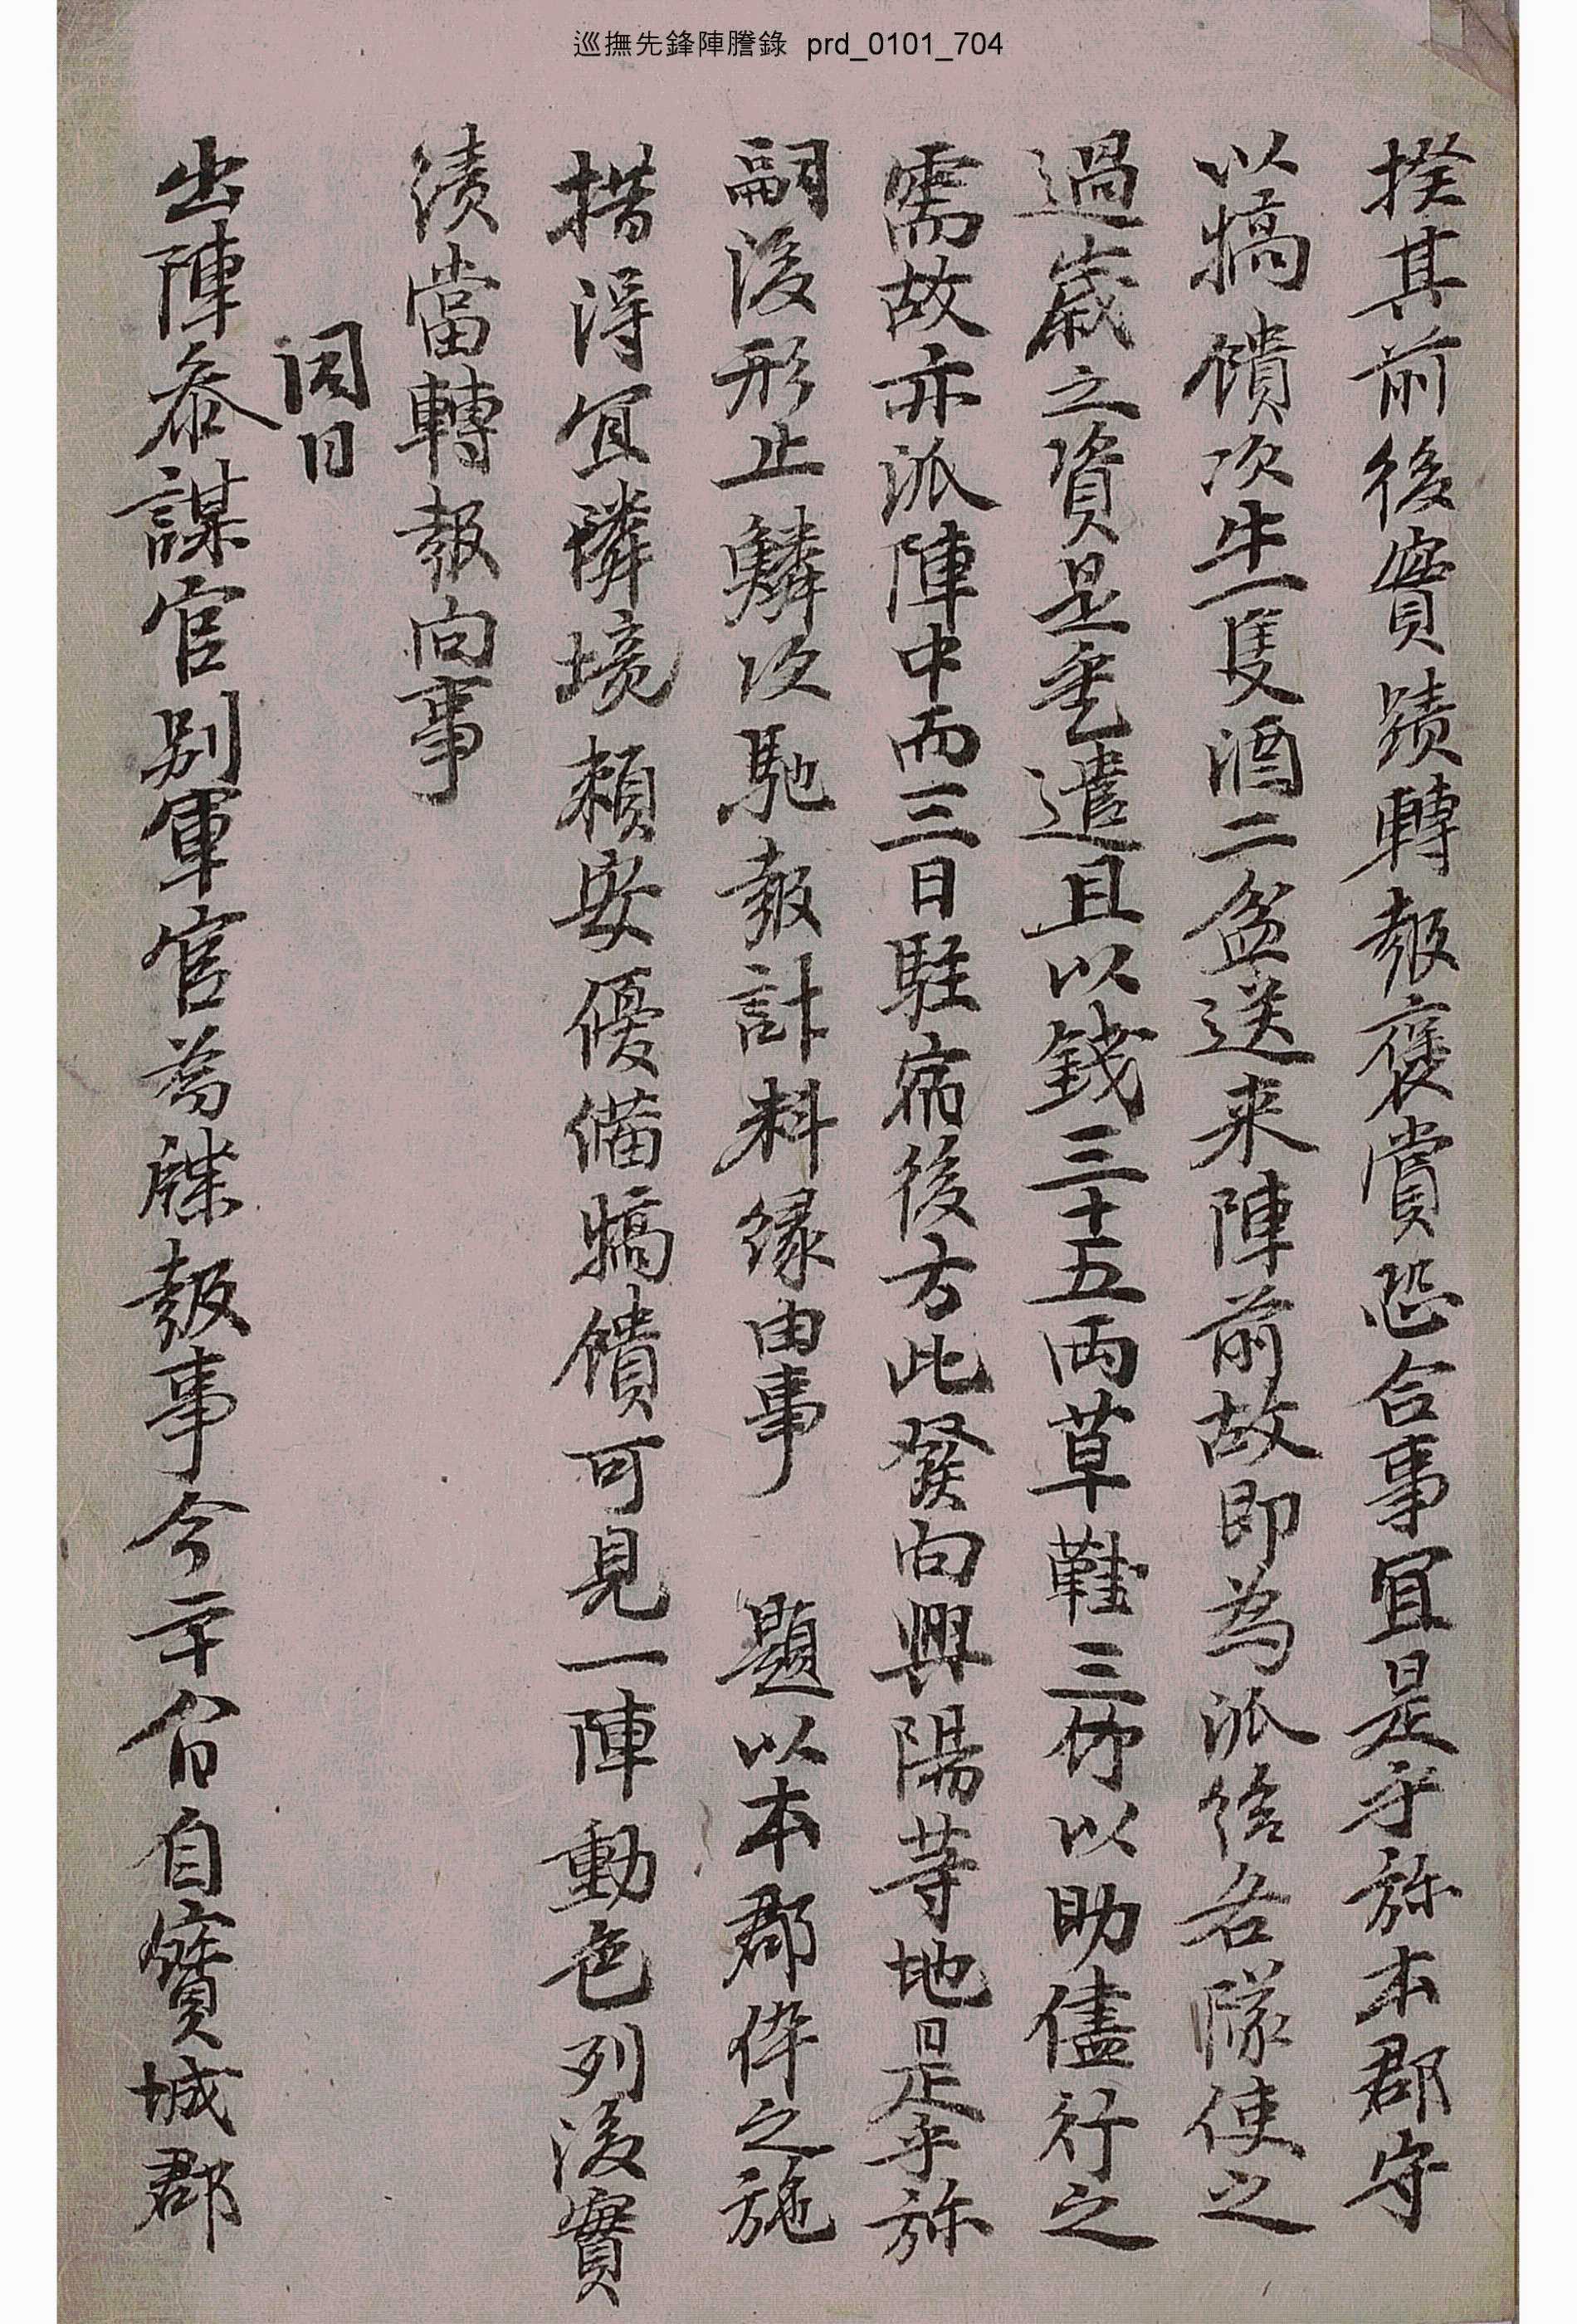 巡撫先鋒陣謄錄 prd_0101_704
揆其前後實蹟轉報褒賞恐合事宜是乎旀本郡守
以犒饋次牛一隻酒二盆送来陣前故即為派給各隊使之
過歲之資是乎遣且以錢三十五両草鞋三竹以助儘行之
需故亦派陣中而三日駐宿後方此發向興陽䓁地是乎旀
嗣後形止鱗次馳報計料緣由事 題以本郡倅之施
措淂宜隣境頼安優備犒饋可見一陣動色列後實
績當轉報向事
同日
出陣叅謀官别軍官為牒報事今二十八日自寶城郡